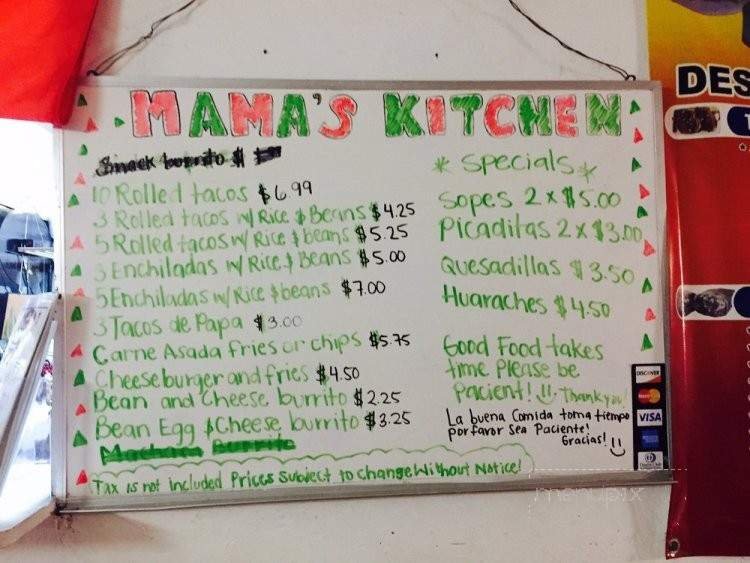 MAMA'S KITCHEN
Snack burrito $
10 Rolled tacos $6.99
3 Rolled tacos w/ Rice & Beans $4.25
5 Rolled tacos w/ Rice & beans $5.25
3 Enchiladas w/ Rice & Beans $5.00
5 Enchiladas w/ Rice & beans $7.00
3 Tacos de Papa $3.00
Carne Asada fries or chips $5.75
Cheeseburger and fries $4.50
Bean and Cheese burrito $2.25
Bean Egg & Cheese burrito $3.25
Machaca Burrito
Tax is not included Prices Subject to change Without Notice!
* Specials *
Sopes 2 x $5.00
Picaditas 2 x $3.00
Quesadillas $3.50
Huaraches $4.50
Good Food takes
time Please be
Pacient! Thank you!
La buena Comida toma tiempo
por favor Sea Paciente!
Gracias!
DISCOVER
MasterCard
VISA
Diners Club
DES
menupix